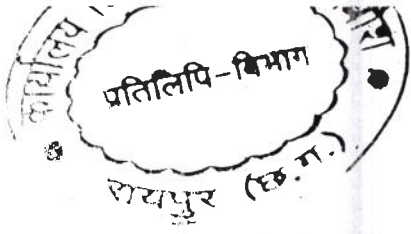 कार्यालय
प्रतिलिपि-विभाग
रायपुर (छ.ग.)